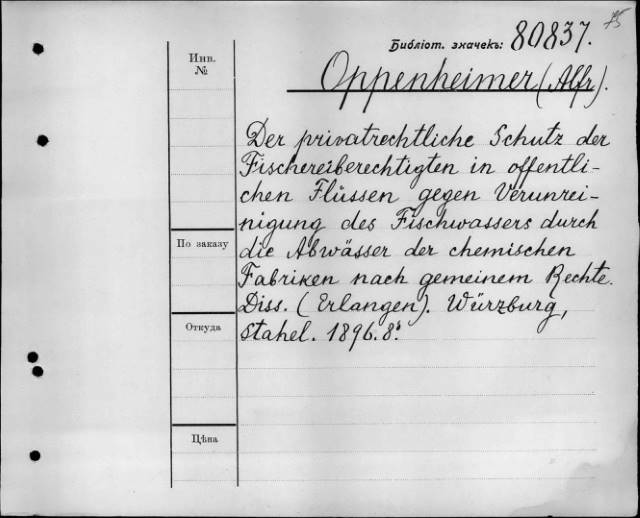 75
Библіот. значекъ: 80837.
Инв. №
Oppenheimer (Alfr).
Der privatrechtliche Schutz der
Fischereiberechtigten in offentli-
chen Flüssen gegen Verunrei-
nigung des Fischwassers durch
die Abwässer der chemischen
Fabriken nach gemeinem Rechte.
Diss. (Erlangen). Würzburg,
Stahel. 1896. 8°.
По заказу
Откуда
Цѣна